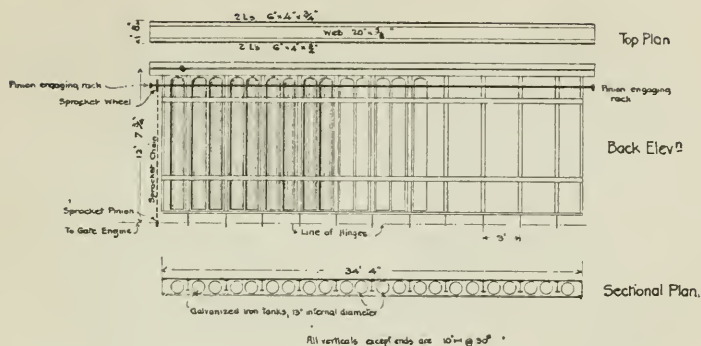 2 Ls 6" × 4" × 3/4"
Web 20" ×
2 Ls 6" × 4" ×
Top Plan
Pinion engaging rack
Sprocket Wheel
Pinion engaging
rack
Sprocket Chain
Back Elevn
Sprocket Pinion
To Gate Engine
Line of Hinges
34' 4"
Sectional Plan.
Galvanized iron tanks, 13" internal diameter
All verticals except ends are 10" @ 30#